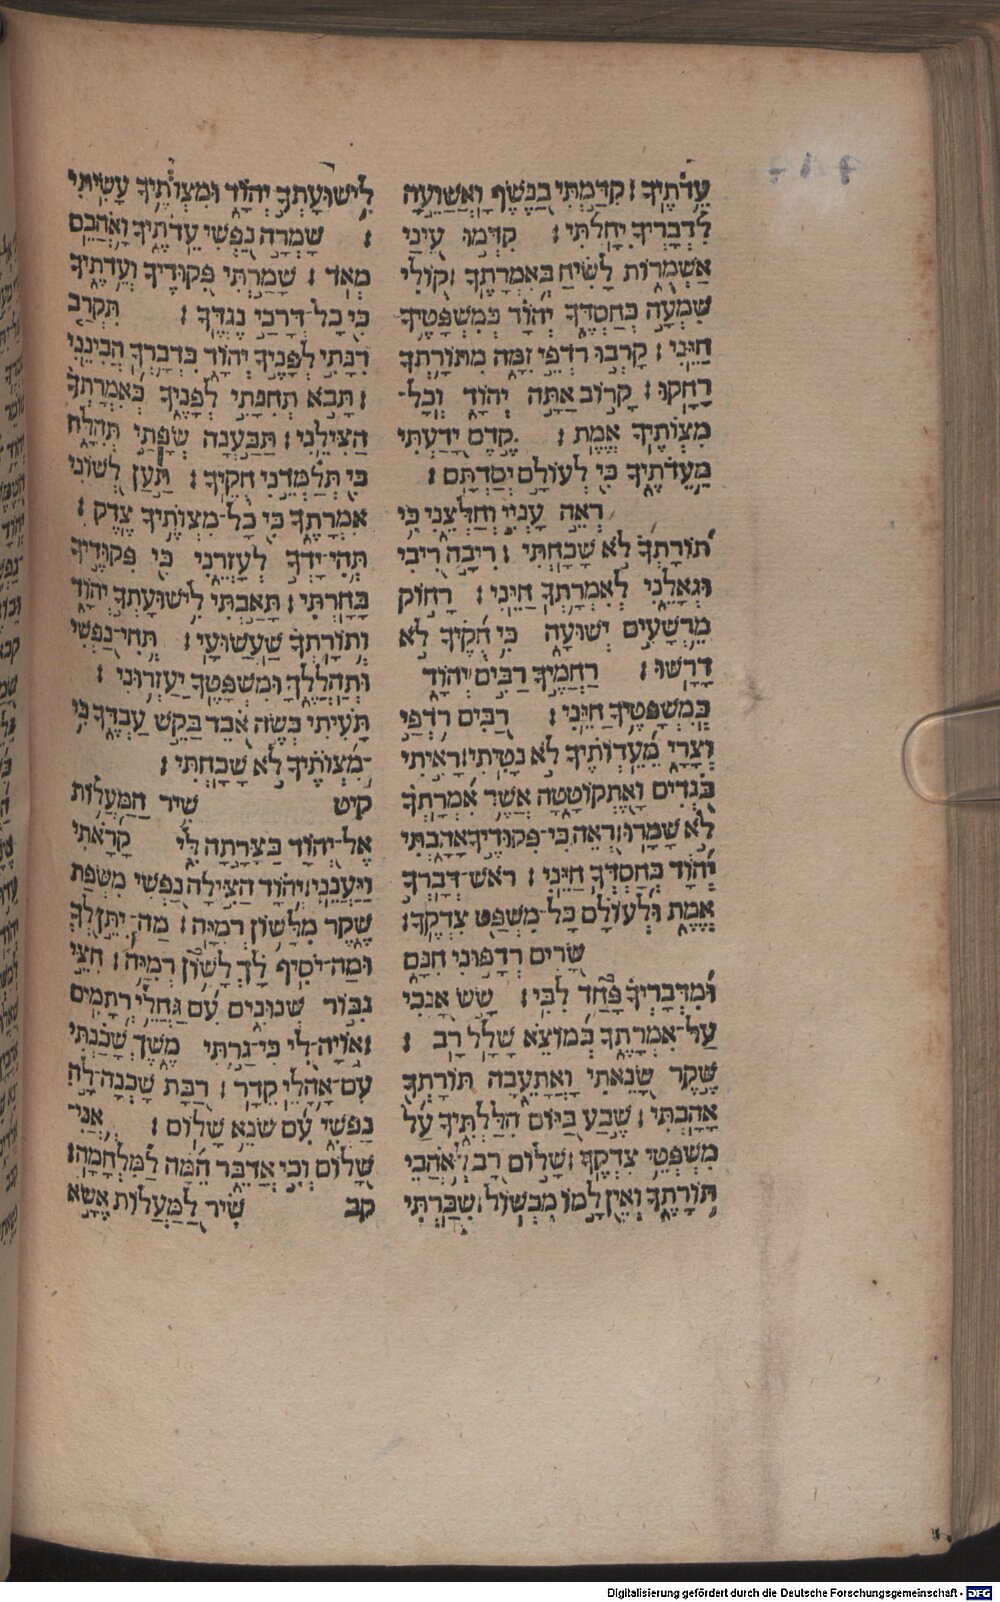 עֵדֹתֶיךָ׃ קִדַּמְתִּי בַנֶּשֶׁף וָאֲשַׁוֵּעָה
לִדְבָרְיךָ יִחָלְתִּי׃ קִדְּמוּ עֵינַי
אַשְׁמֻרוֹת לָשִׂיחַ בְּאִמְרָתֶךָ׃ קוֹלִי
שִׁמְעָה כְחַסְדֶּךָ יְהוָֹד כְּמִשְׁפָּטֶיךָ
חַיֵּנִי׃ קָרְבוּ רֹדְפֵי זִמָּה מִתּוֹרָתְךָ
רָחָקוּ׃ קָרוֹב אַתָּה יְהוָֹד וְכָל־
מִצְוֹתֶיךָ אֱמֶת׃ קֶדֶם יָדַעְתִּי
מֵעֵדֹתֶיךָ כִּי לְעוֹלָם יְסַדְתָּם׃
רְאֵה עָנְיִי וְחַלְּצֵנִי כִּי
תוֹרָתְךָ לֹא שָׁכָחְתִּי׃ רִיבָה רִיבִי
וּגְאָלֵנִי לְאִמְרָתְךָ חַיֵּנִי׃ רָחוֹק
מֵרְשָׁעִים יְשׁוּעָה כִּי חֻקֶּיךָ לֹא
דָרָשׁוּ׃ רַחֲמֶיךָ רַבִּים יְהוָֹד
כְּמִשְׁפָּטֶיךָ חַיֵּנִי׃ רַבִּים רֹדְפַי
וְצָרָי מֵעֵדְוֹתֶיךָ לֹא נָטִיתִי׃ רָאִיתִי
בֹגְדִים וָאֶתְקוֹטָטָה אֲשֶׁר אִמְרָתְךָ
לֹא שָׁמָרוּ׃ רְאֵה כִּי־פִקּוּדֶיךָ אָהָבְתִּי
יְהוָֹד כְּחַסְדְּךָ חַיֵּנִי׃ רֹאשׁ־דְּבָרְךָ
אֱמֶת וּלְעוֹלָם כָּל־מִשְׁפַּט צִדְקֶךָ׃
שָׂרִים רְדָפוּנִי חִנָּם
וּמִדְּבָרֶיךָ פָּחַד לִבִּי׃ שָׂשׂ אָנֹכִי
עַל־אִמְרָתֶךָ כְּמוֹצֵא שָׁלָל רָב׃
שֶׁקֶר שָׂנֵאתִי וָאֲתַעֵבָה תּוֹרָתְךָ
אָהָבְתִּי׃ שֶׁבַע בַּיּוֹם הִלַּלְתִּיךָ עַל
מִשְׁפְּטֵי צִדְקֶךָ׃ שָׁלוֹם רָב לְאֹהֲבֵי
תוֹרָתֶךָ וְאֵין לָמוֹ מִכְשׁוֹל׃ שִׂבַּרְתִּי
לִישׁוּעָתְךָ יְהוָֹד וּמִצְוֹתֶיךָ עָשִׂיתִי
׃ שָׁמְרָה נַפְשִׁי עֵדֹתֶיךָ וָאֹהֲבֵם
מְאֹד׃ שָׁמַרְתִּי פִקּוּדֶיךָ וְעֵדֹתֶיךָ
כִּי כָל־דְּרָכַי נֶגְדֶּךָ׃ תִּקְרַב
רִנָּתִי לְפָנֶיךָ יְהוָֹד כִּדְבָרְךָ הֲבִינֵנִי
׃ תָּבֹא תְּחִנָּתִי לְפָנֶיךָ כְּאִמְרָתְךָ
הַצִּילֵנִי׃ תַּבַּעְנָה שְׂפָתַי תְּהִלָּה
כִּי תְלַמְּדֵנִי חֻקֶּיךָ׃ תַּעַן לְשׁוֹנִי
אִמְרָתֶךָ כִּי כָל־מִצְוֹתֶיךָ צֶדֶק׃
תְּהִי־יָדְךָ לְעָזְרֵנִי כִּי פִקּוּדֶיךָ
בָחָרְתִּי׃ תָּאַבְתִּי לִישׁוּעָתְךָ יְהוָֹד
וְתוֹרָתְךָ שַׁעֲשׁוּעָי׃ תְּחִי־נַפְשִׁי
וּתְהַלְלֶךָּ וּמִשְׁפָּטֶךָ יַעְזְרוּנִי׃
תָּעִיתִי כְּשֶׂה אֹבֵד בַּקֵּשׁ עַבְדֶּךָ כִּי
מִצְוֹתֶיךָ לֹא שָׁכָחְתִּי׃
קיט שִׁיר הַמַּעֲלוֹת
אֶל־יְהוָֹד בַּצָּרָתָה לִּי קָרָאתִי
וַיַּעֲנֵנִי׃ יְהוָֹד הַצִּילָה נַפְשִׁי מִשְּׂפַת
שֶׁקֶר מִלָּשׁוֹן רְמִיָּה׃ מַה־יִּתֵּן לְךָ
וּמַה־יֹּסִיף לָךְ לָשׁוֹן רְמִיָּה׃ חִצֵּי
גִבּוֹר שְׁנוּנִים עִם גַּחֲלֵי רְתָמִים
׃ אוֹיָה־לִי כִּי־גַרְתִּי מֶשֶׁךְ שָׁכַנְתִּי
עִם־אָהֳלֵי קֵדָר׃ רַבַּת שָׁכְנָה־לָּהּ
נַפְשִׁי עִם שׂוֹנֵא שָׁלוֹם׃ אֲנִי־
שָׁלוֹם וְכִי אֲדַבֵּר הֵמָּה לַמִּלְחָמָה׃
קכ שִׁיר לַמַּעֲלוֹת אֶשָּׂא
Digitalisierung gefördert durch die Deutsche Forschungsgemeinschaft - DFG